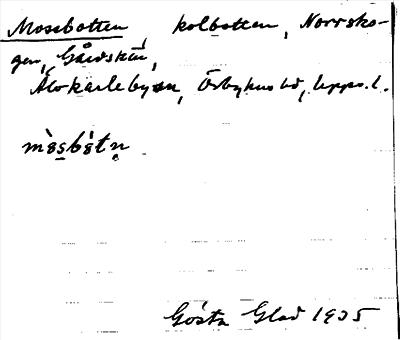 Mossbotten, kolbotten, Norrsko-
gen, Gårdskär,
Älvkarleby sn, Örbyhus hd, Upps. l.
Gösta Glad 1935